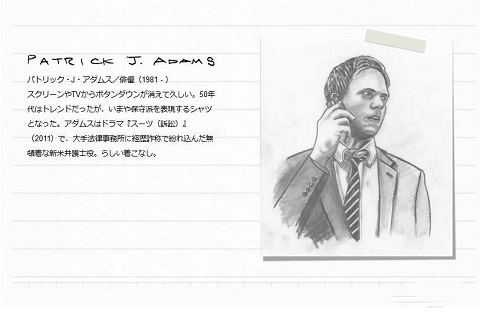 PATRICK J. ADAMS
パトリック・J・アダムス／俳優（1981 - ）
スクリーンやTVからボタンダウンが消えて久しい。50年
代はトレンドだったが、いまや保守派を表現するシャツ
となった。アダムスはドラマ『スーツ（訴訟）』
（2011）で、大手法律事務所に経歴詐称で紛れ込んだ無
頓着な新米弁護士役。らしい着こなし。